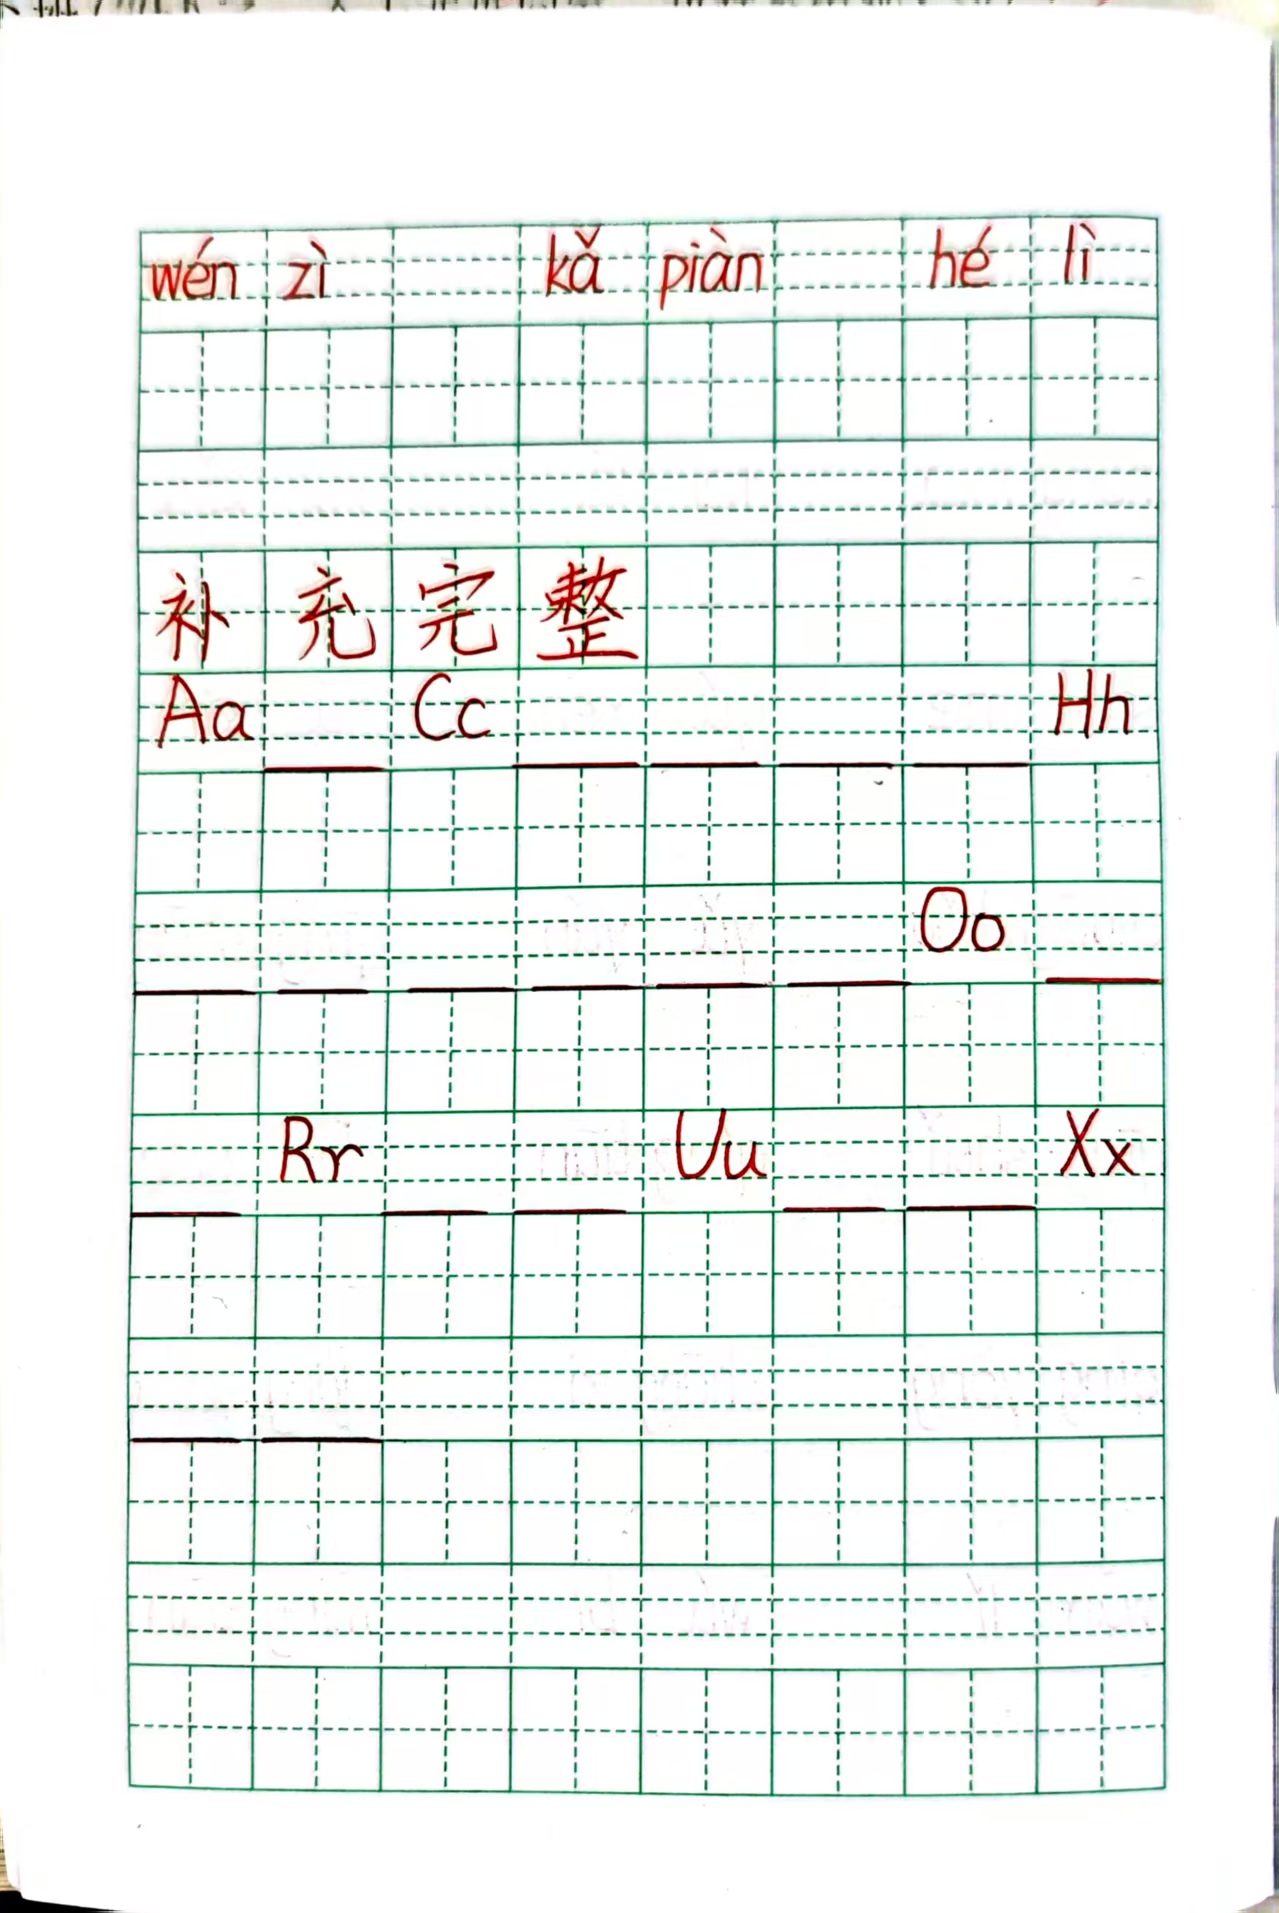 wén zì kǎ piàn hé lì
补充完整
Aa Cc Hh
Oo
Rr Uu Xx